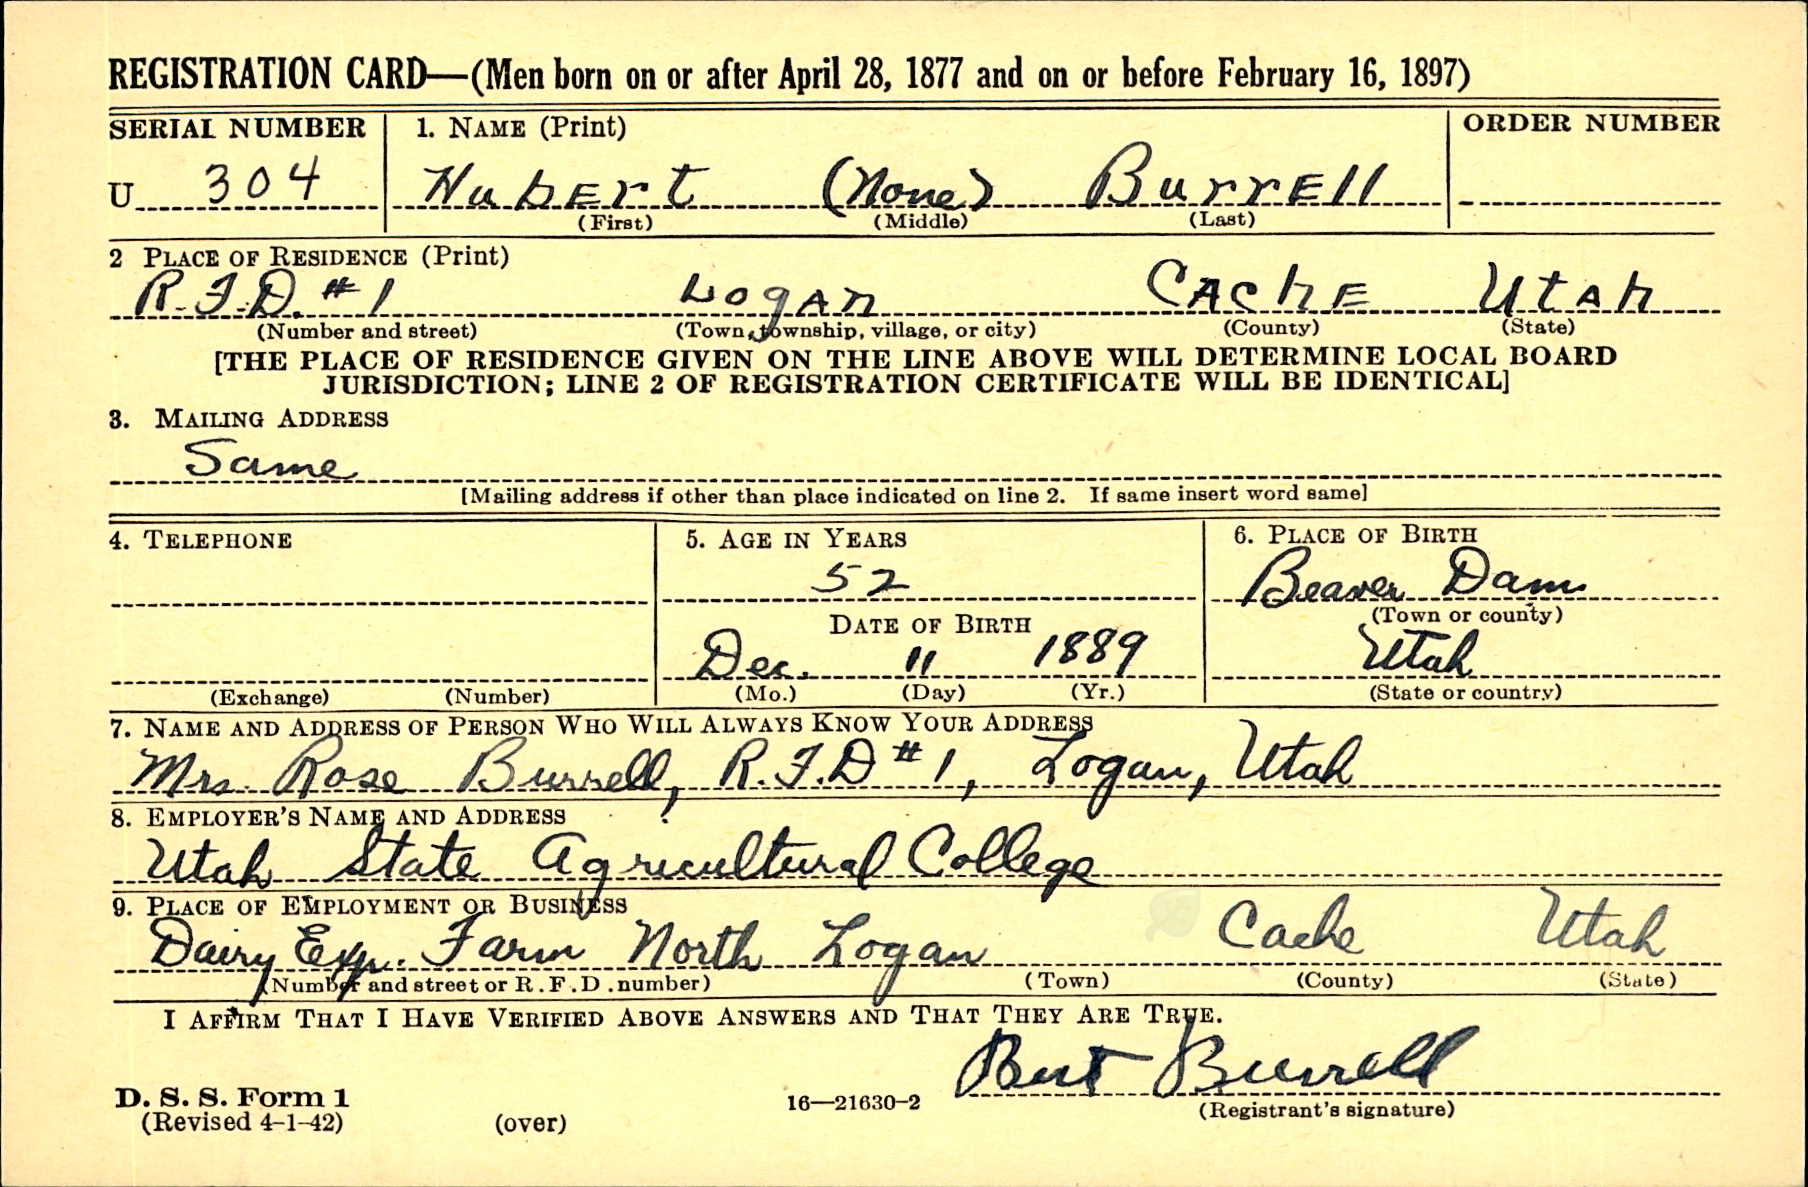 REGISTRATION CARD—(Men born on or after April 28, 1877 and on or before February 16, 1897)
SERIAL NUMBER 1. NAME (Print) ORDER NUMBER
U 304 Hubert (None) Burrell
(First) (Middle) (Last)
2 PLACE OF RESIDENCE (Print)
R.F.D. #1 Logan Cache Utah
(Number and street) (Town, township, village, or city) (County) (State)
[THE PLACE OF RESIDENCE GIVEN ON THE LINE ABOVE WILL DETERMINE LOCAL BOARD
JURISDICTION; LINE 2 OF REGISTRATION CERTIFICATE WILL BE IDENTICAL]
3. MAILING ADDRESS
Same
[Mailing address if other than place indicated on line 2. If same insert word same]
4. TELEPHONE 5. AGE IN YEARS 6. PLACE OF BIRTH
52 Beaver Dam
DATE OF BIRTH (Town or county)
Dec. 11 1889 Utah
(Exchange) (Number) (Mo.) (Day) (Yr.) (State or country)
7. NAME AND ADDRESS OF PERSON WHO WILL ALWAYS KNOW YOUR ADDRESS
Mrs. Rose Burrell, R.F.D #1, Logan, Utah
8. EMPLOYER'S NAME AND ADDRESS
Utah State Agricultural College
9. PLACE OF EMPLOYMENT OR BUSINESS
Dairy Exp. Farm North Logan Cache Utah
(Number and street or R.F.D. number) (Town) (County) (State)
I AFFIRM THAT I HAVE VERIFIED ABOVE ANSWERS AND THAT THEY ARE TRUE.
Bert Burrell
D. S. S. Form 1 16—21630-2 (Registrant's signature)
(Revised 4-1-42) (over)